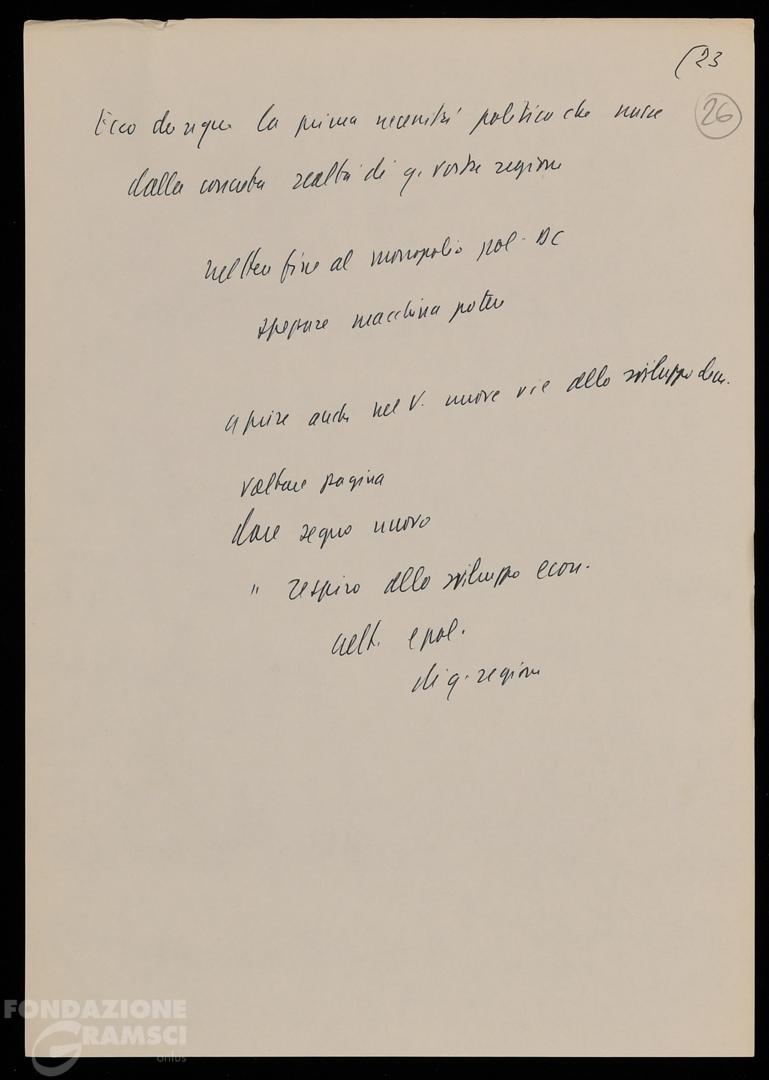 (23
26
Ecco dunque la prima necessità politica che nasce
dalla concreta realtà di q. vostra regione
mettere fine al monopolio pol. DC
spezzare macchina potere
aprire anche nel V. nuove vie allo sviluppo dem.
voltare pagina
dare segno nuovo
" respiro allo sviluppo econ.
cult. e pol.
di q. regione
FONDAZIONE
GRAMSCI
onlus